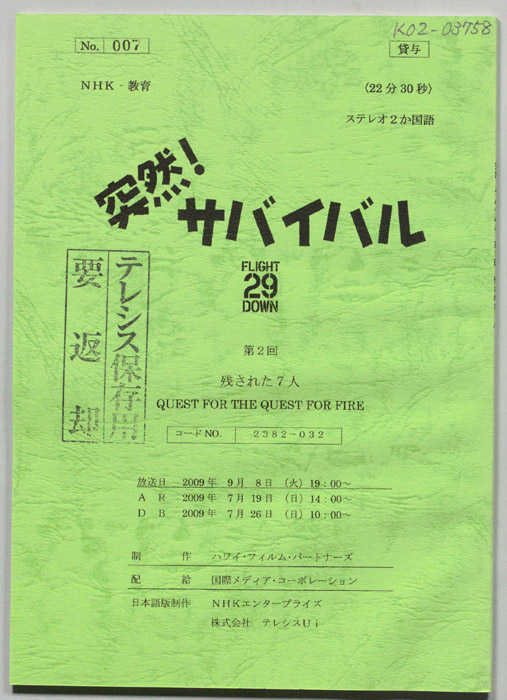 K02-03758
No. 007
貸与
NHK-教育
〈22分30秒〉
ステレオ2か国語
突然!
サバイバル
FLIGHT
29
DOWN
テレシス保存用
要返却
第2回
残された7人
QUEST FOR THE QUEST FOR FIRE
コードNO. 2382-032
放送日 2009年 9月 8日 (火) 19:00~
A R 2009年 7月19日 (日) 14:00~
D B 2009年 7月26日 (日) 10:00~
制作 ハワイ・フィルム・パートナーズ
配給 国際メディア・コーポレーション
日本語版制作 NHKエンタープライズ
株式会社 テレシスUi